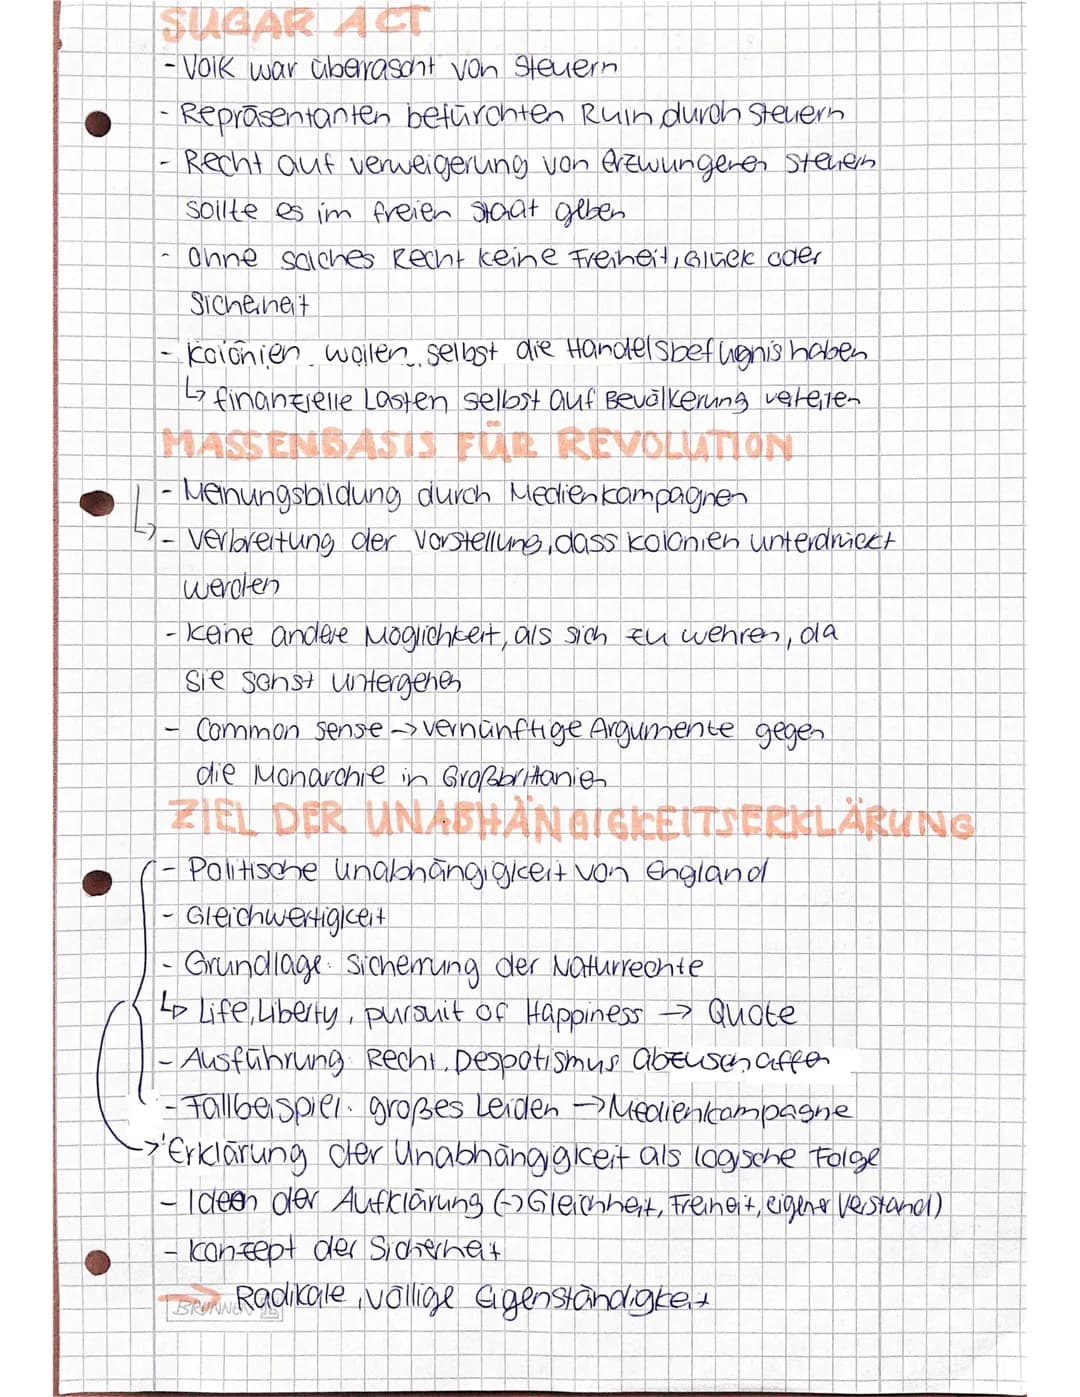 SUGAR ACT
- Volk war überascht von Steuern
- Repräsentanten befürchten Ruin durch Steuern
- Recht auf verweigerung von erzwungenen Steuern
sollte es im freien Staat geben
- Ohne solches Recht keine Freiheit, Glück oder
Sicherheit
- Kolonien wollen selbst die Handelsbefugnis haben
↳ finanzielle Lasten selbst auf Bevölkerung verteilen
MASSENBASIS FÜR REVOLUTION
- Meinungsbildung durch Medienkampagnen
↳ - Verbreitung der Vorstellung, dass Kolonien unterdrückt
werden
- Keine andere Möglichkeit, als sich zu wehren, da
sie sonst untergehen
- Common sense → vernünftige Argumente gegen
die Monarchie in Großbritanien
ZIEL DER UNABHÄNGIGKEITSERKLÄRUNG
- Politische Unabhängigkeit von England
- Gleichwertigkeit
- Grundlage: Sicherrung der Naturrechte
↳ Life, Liberty, pursuit of Happiness → Quote
- Ausführung: Recht, Despotismus abzuschaffen
- Fallbeispiel: großes Leiden → Medienkampagne
→ Erklärung der Unabhängigkeit als logsche Folge
- Ideen der Aufklärung (→ Gleichheit, Freiheit, eigener Verstand)
- Konzept der Sicherheit
→ Radikale, völlige Eigenständigkeit
BRUNNEN